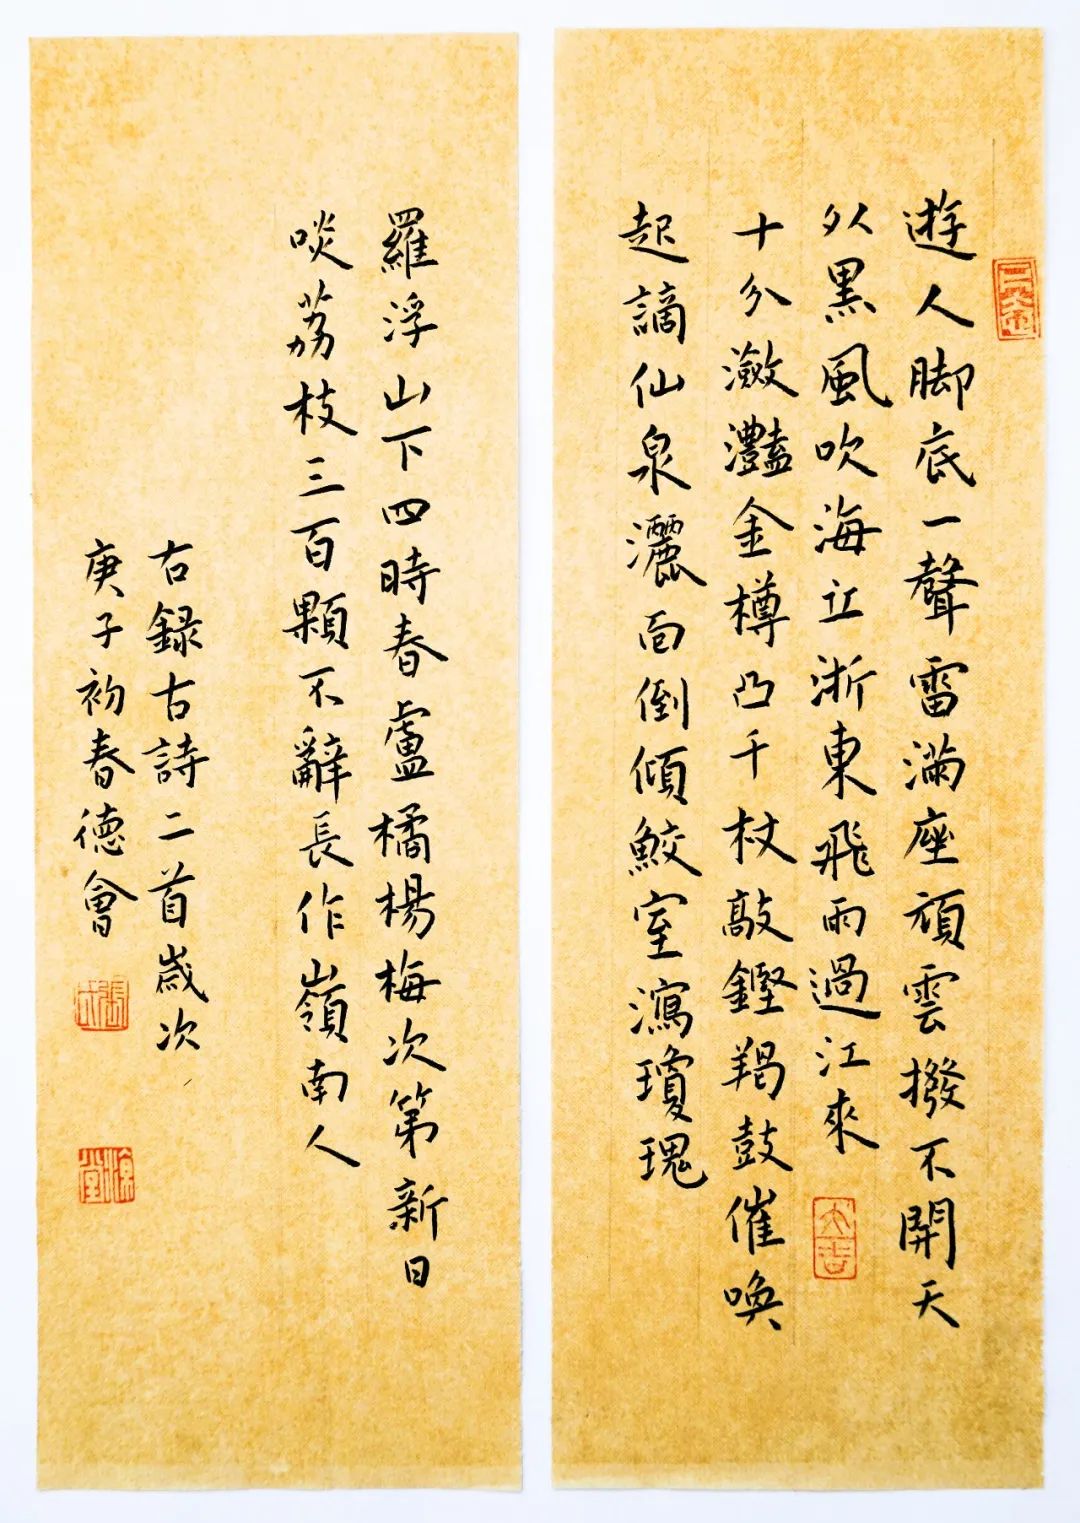 遊人脚底一聲雷滿座頑雲撥不開天
外黑風吹海立浙東飛雨過江來
十分瀲灩金樽凸千杖敲鏗羯鼓催喚
起謫仙泉灑面倒傾鮫室瀉瓊瑰
大吉
羅浮山下四時春盧橘楊梅次第新日
啖荔枝三百顆不辭長作嶺南人
右録古詩二首歳次
庚子初春德會